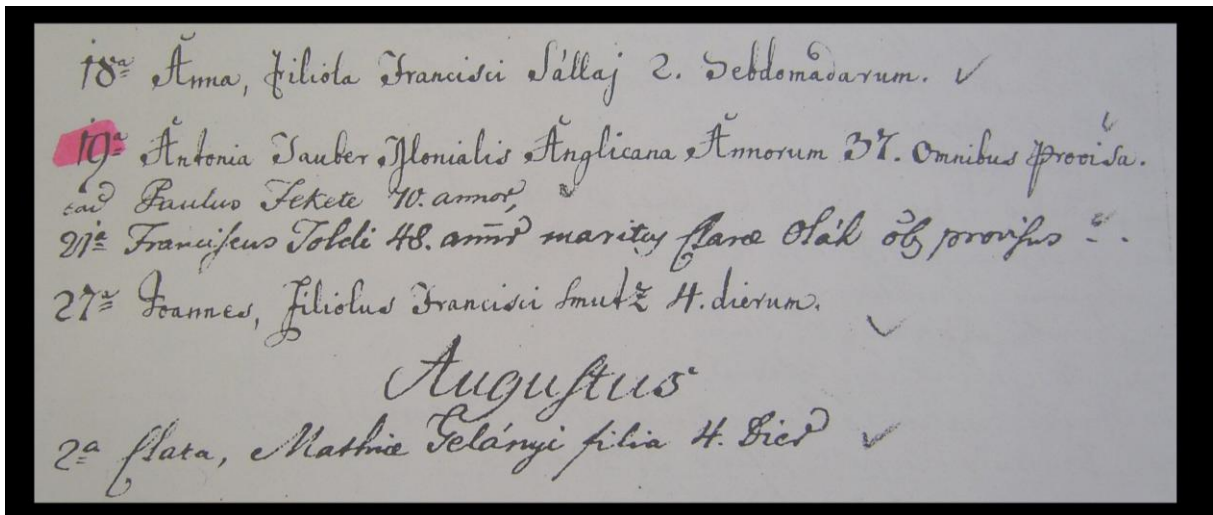 18ª Anna, filiola Francisci Sállaj 2. Sebdomadarum.
19ª Antonia Tauber Monialis Anglicana Annorum 37. Omnibus Provisa.
ead Paulus Fekete 70. annor,
21ª Franciscus Toldi 48. annr maritus Claræ Oláh õb provisus
27ª Joannes, filiolus Francisci Smutz 4. dierum.
Augustus
2ª Clara, Mathiæ Gelányi filia 4. Dier